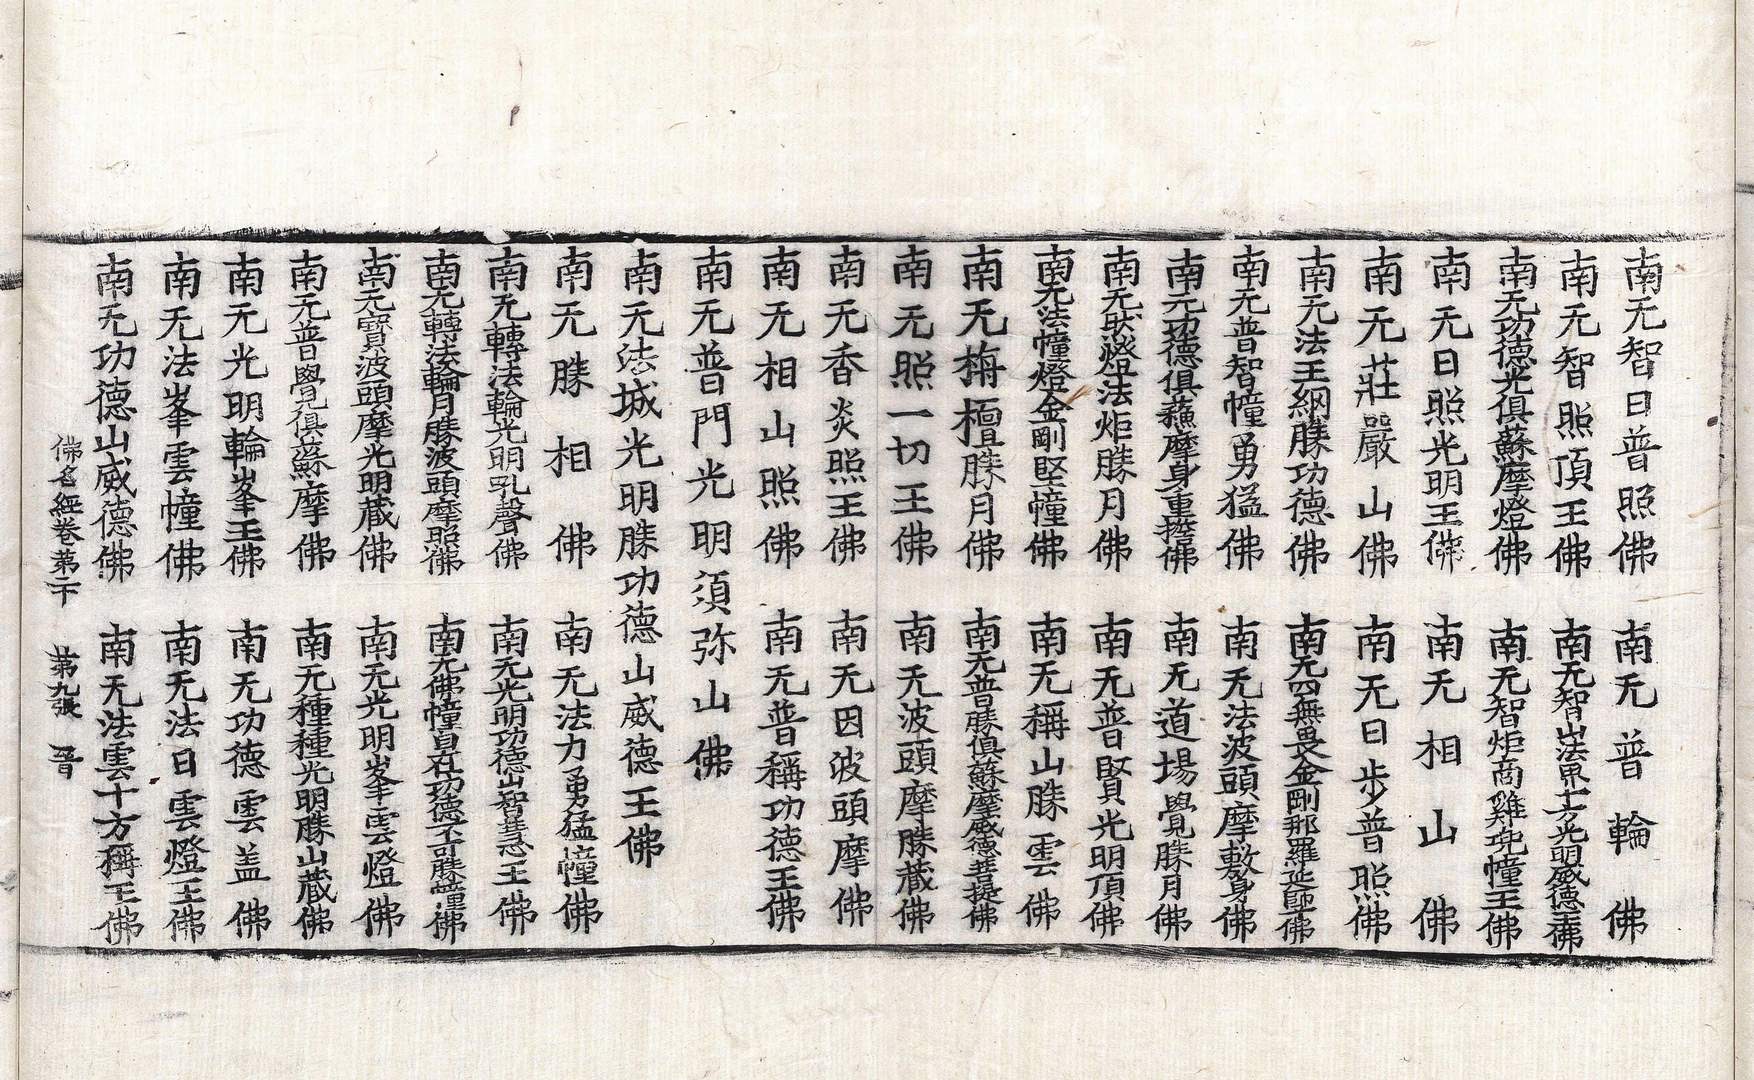 南无智日普照佛　南无普輪佛
南无智照頂王佛　南无智山法界十方光明威德王佛
南无功德光俱蘇摩燈佛　南无智炬高雞兜幢王佛
南无日照光明王佛　南无相山佛
南无莊嚴山佛　南无日步普照佛
南无法王網勝功德佛　南无四無畏金剛那羅延師子佛
南无普智幢勇猛佛　南无法波頭摩敷身佛
南无功德俱蘇摩身重擔佛　南无道場覺勝月佛
南无然燈法炬勝月佛　南无普賢光明頂佛
南无法幢燈金剛堅幢佛　南无稱山勝雲佛
南无栴檀勝月佛　南无普勝俱蘇摩威德菩提佛
南无照一切王佛　南无波頭摩勝藏佛
南无香炎照王佛　南无因波頭摩佛
南无相山照佛　南无普稱功德王佛
南无普門光明須弥山佛
南无法城光明勝功德山威德王佛
南无勝相佛　南无法力勇猛幢佛
南无轉法輪光明吼聲佛　南无光明功德山智慧王佛
南无轉法輪月勝波頭摩照佛　南无佛幢自在功德不可勝幢佛
南无寶波頭摩光明藏佛　南无光明峯雲燈佛
南无普覺俱蘇摩佛　南无種種光明勝山藏佛
南无光明輪峯王佛　南无功德雲盖佛
南无法峯雲幢佛　南无法日雲燈王佛
南无功德山威德佛　南无法雲十方稱王佛
佛名經卷第二十　第九張　晋